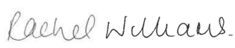 Rachel Williams.